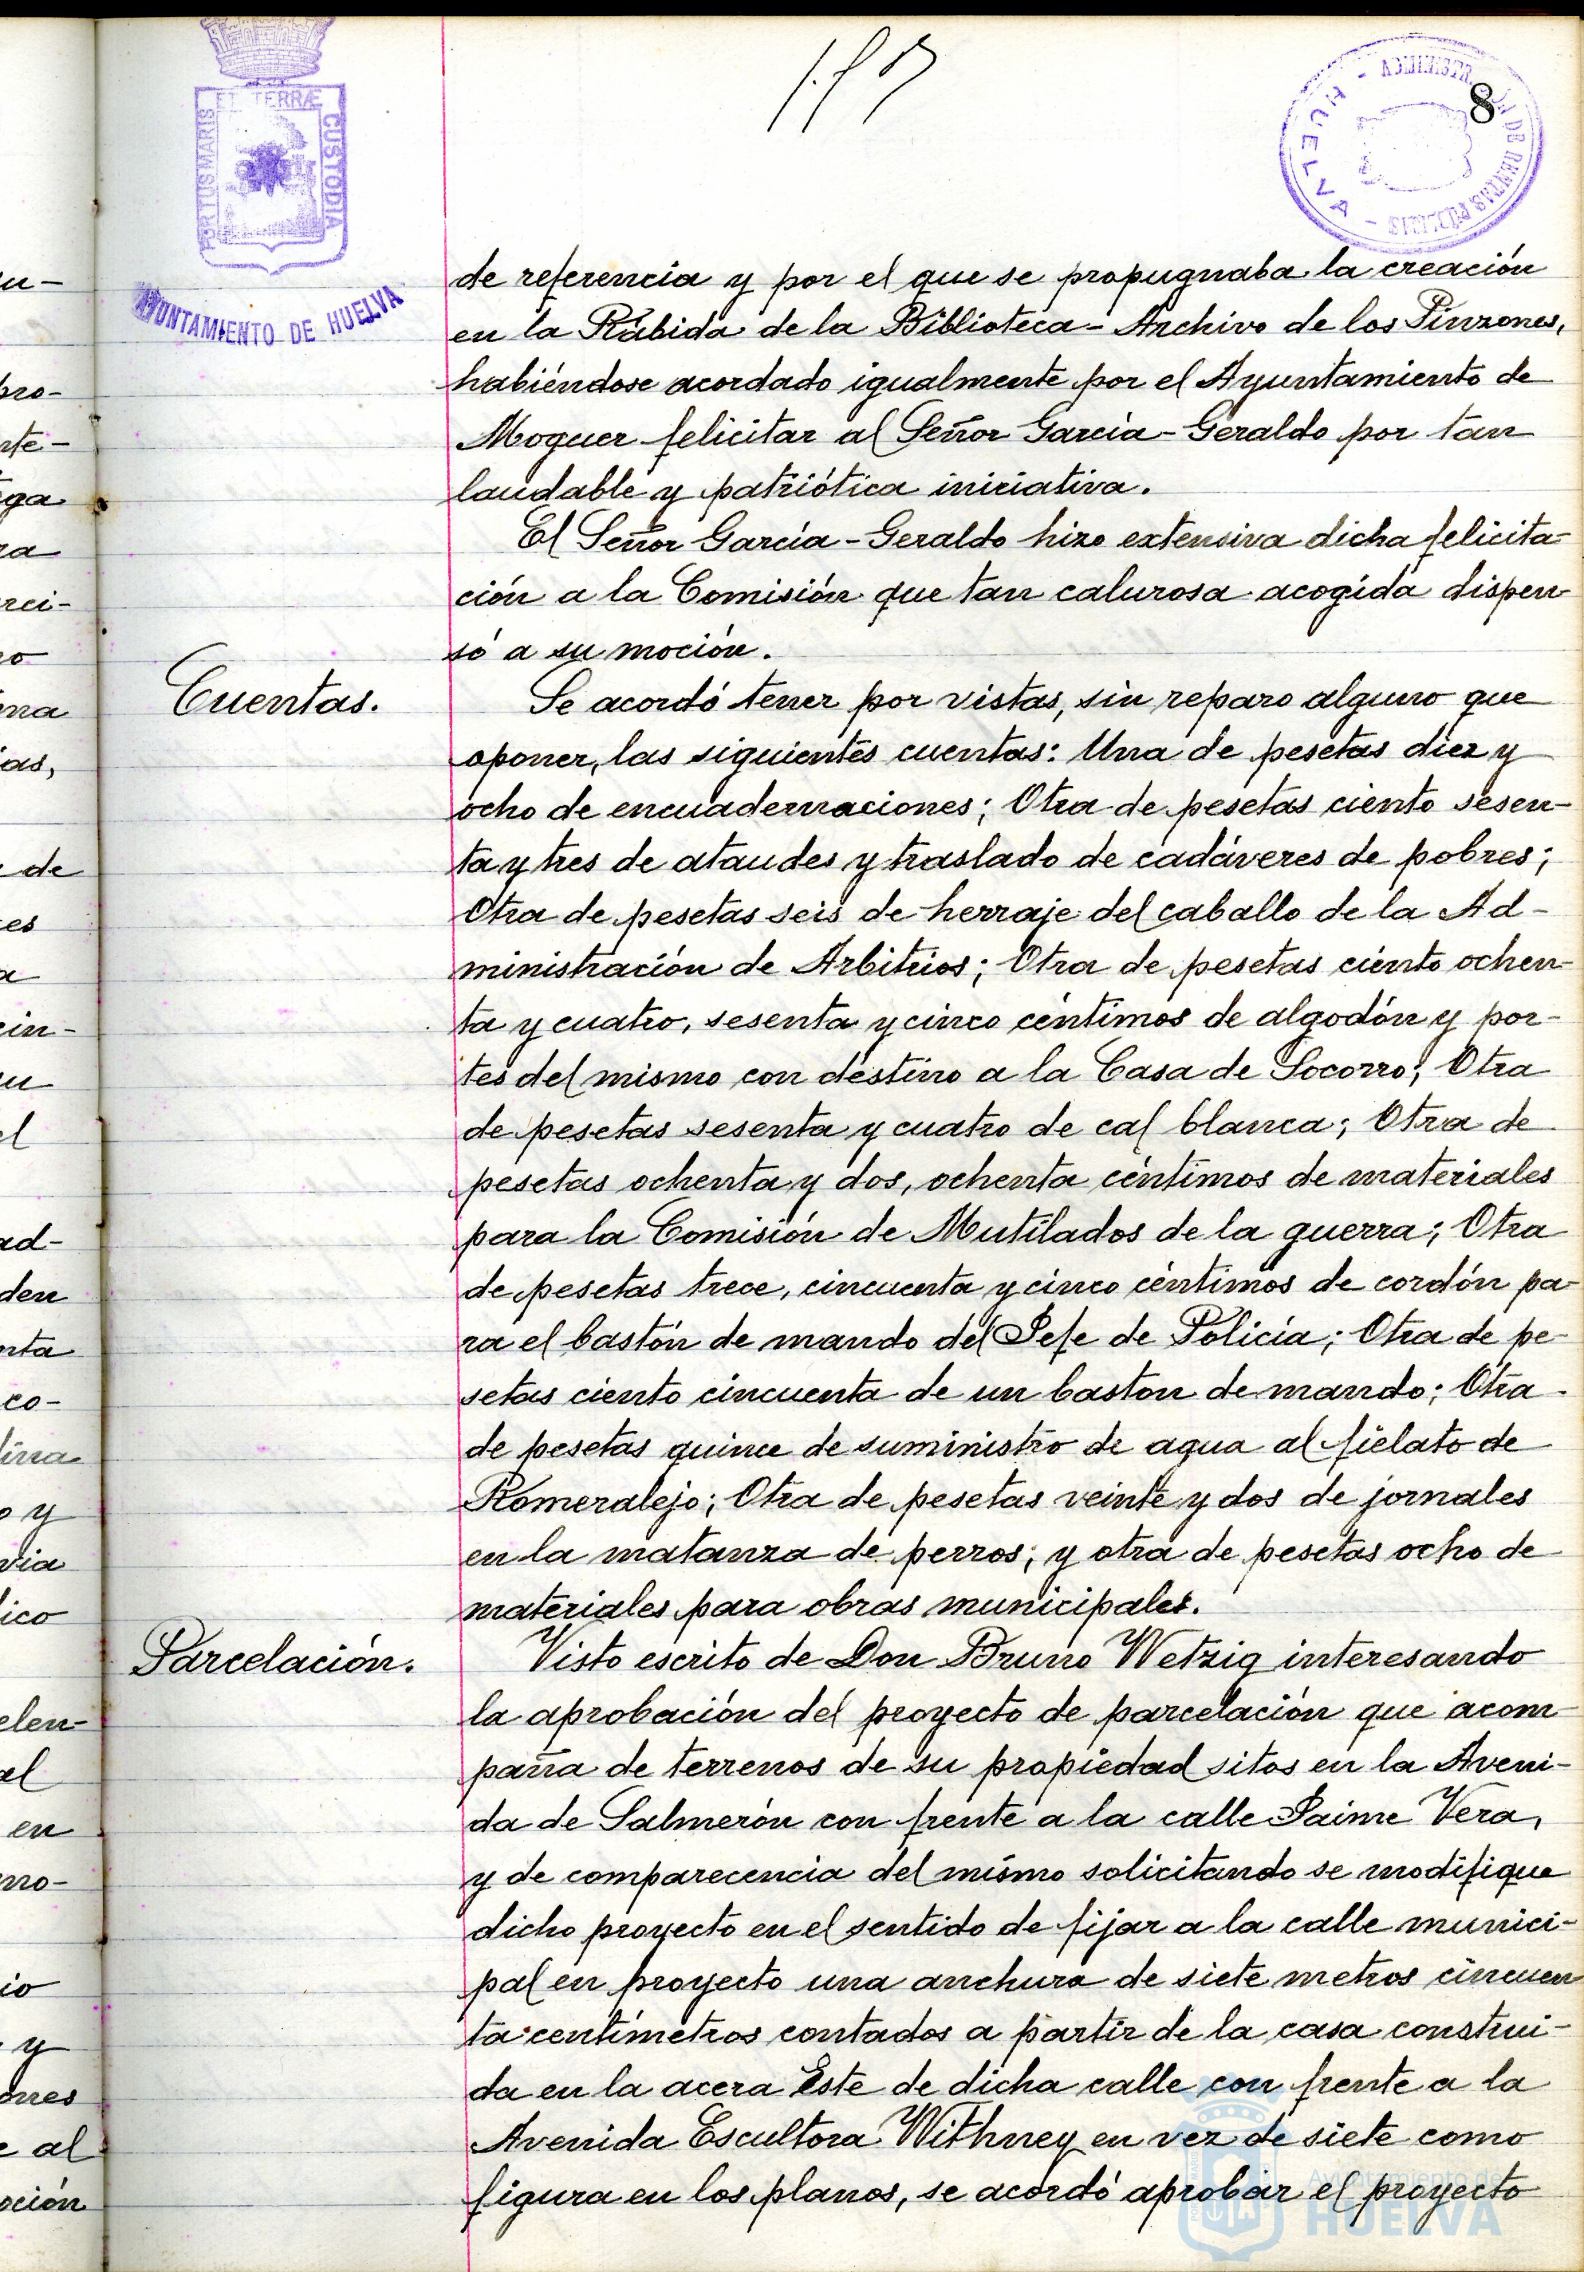 8
PORTUS MARIS ET TERRÆ CUSTODIA
AYUNTAMIENTO DE HUELVA
HUELVA
de referencia y por el que se propugnaba la creación
en la Rábida de la Biblioteca-Archivo de los Pinzones,
habiéndose acordado igualmente por el Ayuntamiento de
Moguer felicitar al Señor García-Geraldo por tan
laudable y patriótica iniciativa.
El Señor García-Geraldo hizo extensiva dicha felicita-
ción a la Comisión que tan calurosa acogida dispen
só a su moción.
Cuentas.
Se acordó tener por vistas, sin reparo alguno que
oponer, las siguientes cuentas: Una de pesetas diez y
ocho de encuadernaciones; Otra de pesetas ciento sesen-
ta y tres de ataudes y traslado de cadáveres de pobres;
Otra de pesetas seis de herraje del caballo de la Ad-
ministración de Arbitrios; Otra de pesetas ciento ochen-
ta y cuatro, sesenta y cinco céntimos de algodón y por-
tes del mismo con destino a la Casa de Socorro; Otra
de pesetas sesenta y cuatro de cal blanca; Otra de
pesetas ochenta y dos, ochenta céntimos de materiales
para la Comisión de Mutilados de la guerra; Otra
de pesetas trece, cincuenta y cinco céntimos de cordón pa-
ra el bastón de mando del Jefe de Policía; Otra de pe-
setas ciento cincuenta de un baston de mando; Otra
de pesetas quince de suministro de agua al fielato de
Romeralejo; Otra de pesetas veinte y dos de jornales
en la matanza de perros; y otra de pesetas ocho de
materiales para obras municipales.
Parcelación.
Visto escrito de Don Bruno Wetzig interesando
la aprobación del proyecto de parcelación que acom-
paña de terrenos de su propiedad sitos en la Aveni-
da de Salmerón con frente a la calle Jaime Vera,
y de comparecencia del mismo solicitando se modifique
dicho proyecto en el sentido de fijar a la calle munici-
pal en proyecto una anchura de siete metros cincuen
ta centímetros contados a partir de la casa construi-
da en la acera Este de dicha calle con frente a la
Avenida Escultora Withney en vez de siete como
figura en los planos, se acordó aprobar el proyecto
Ayuntamiento de
HUELVA